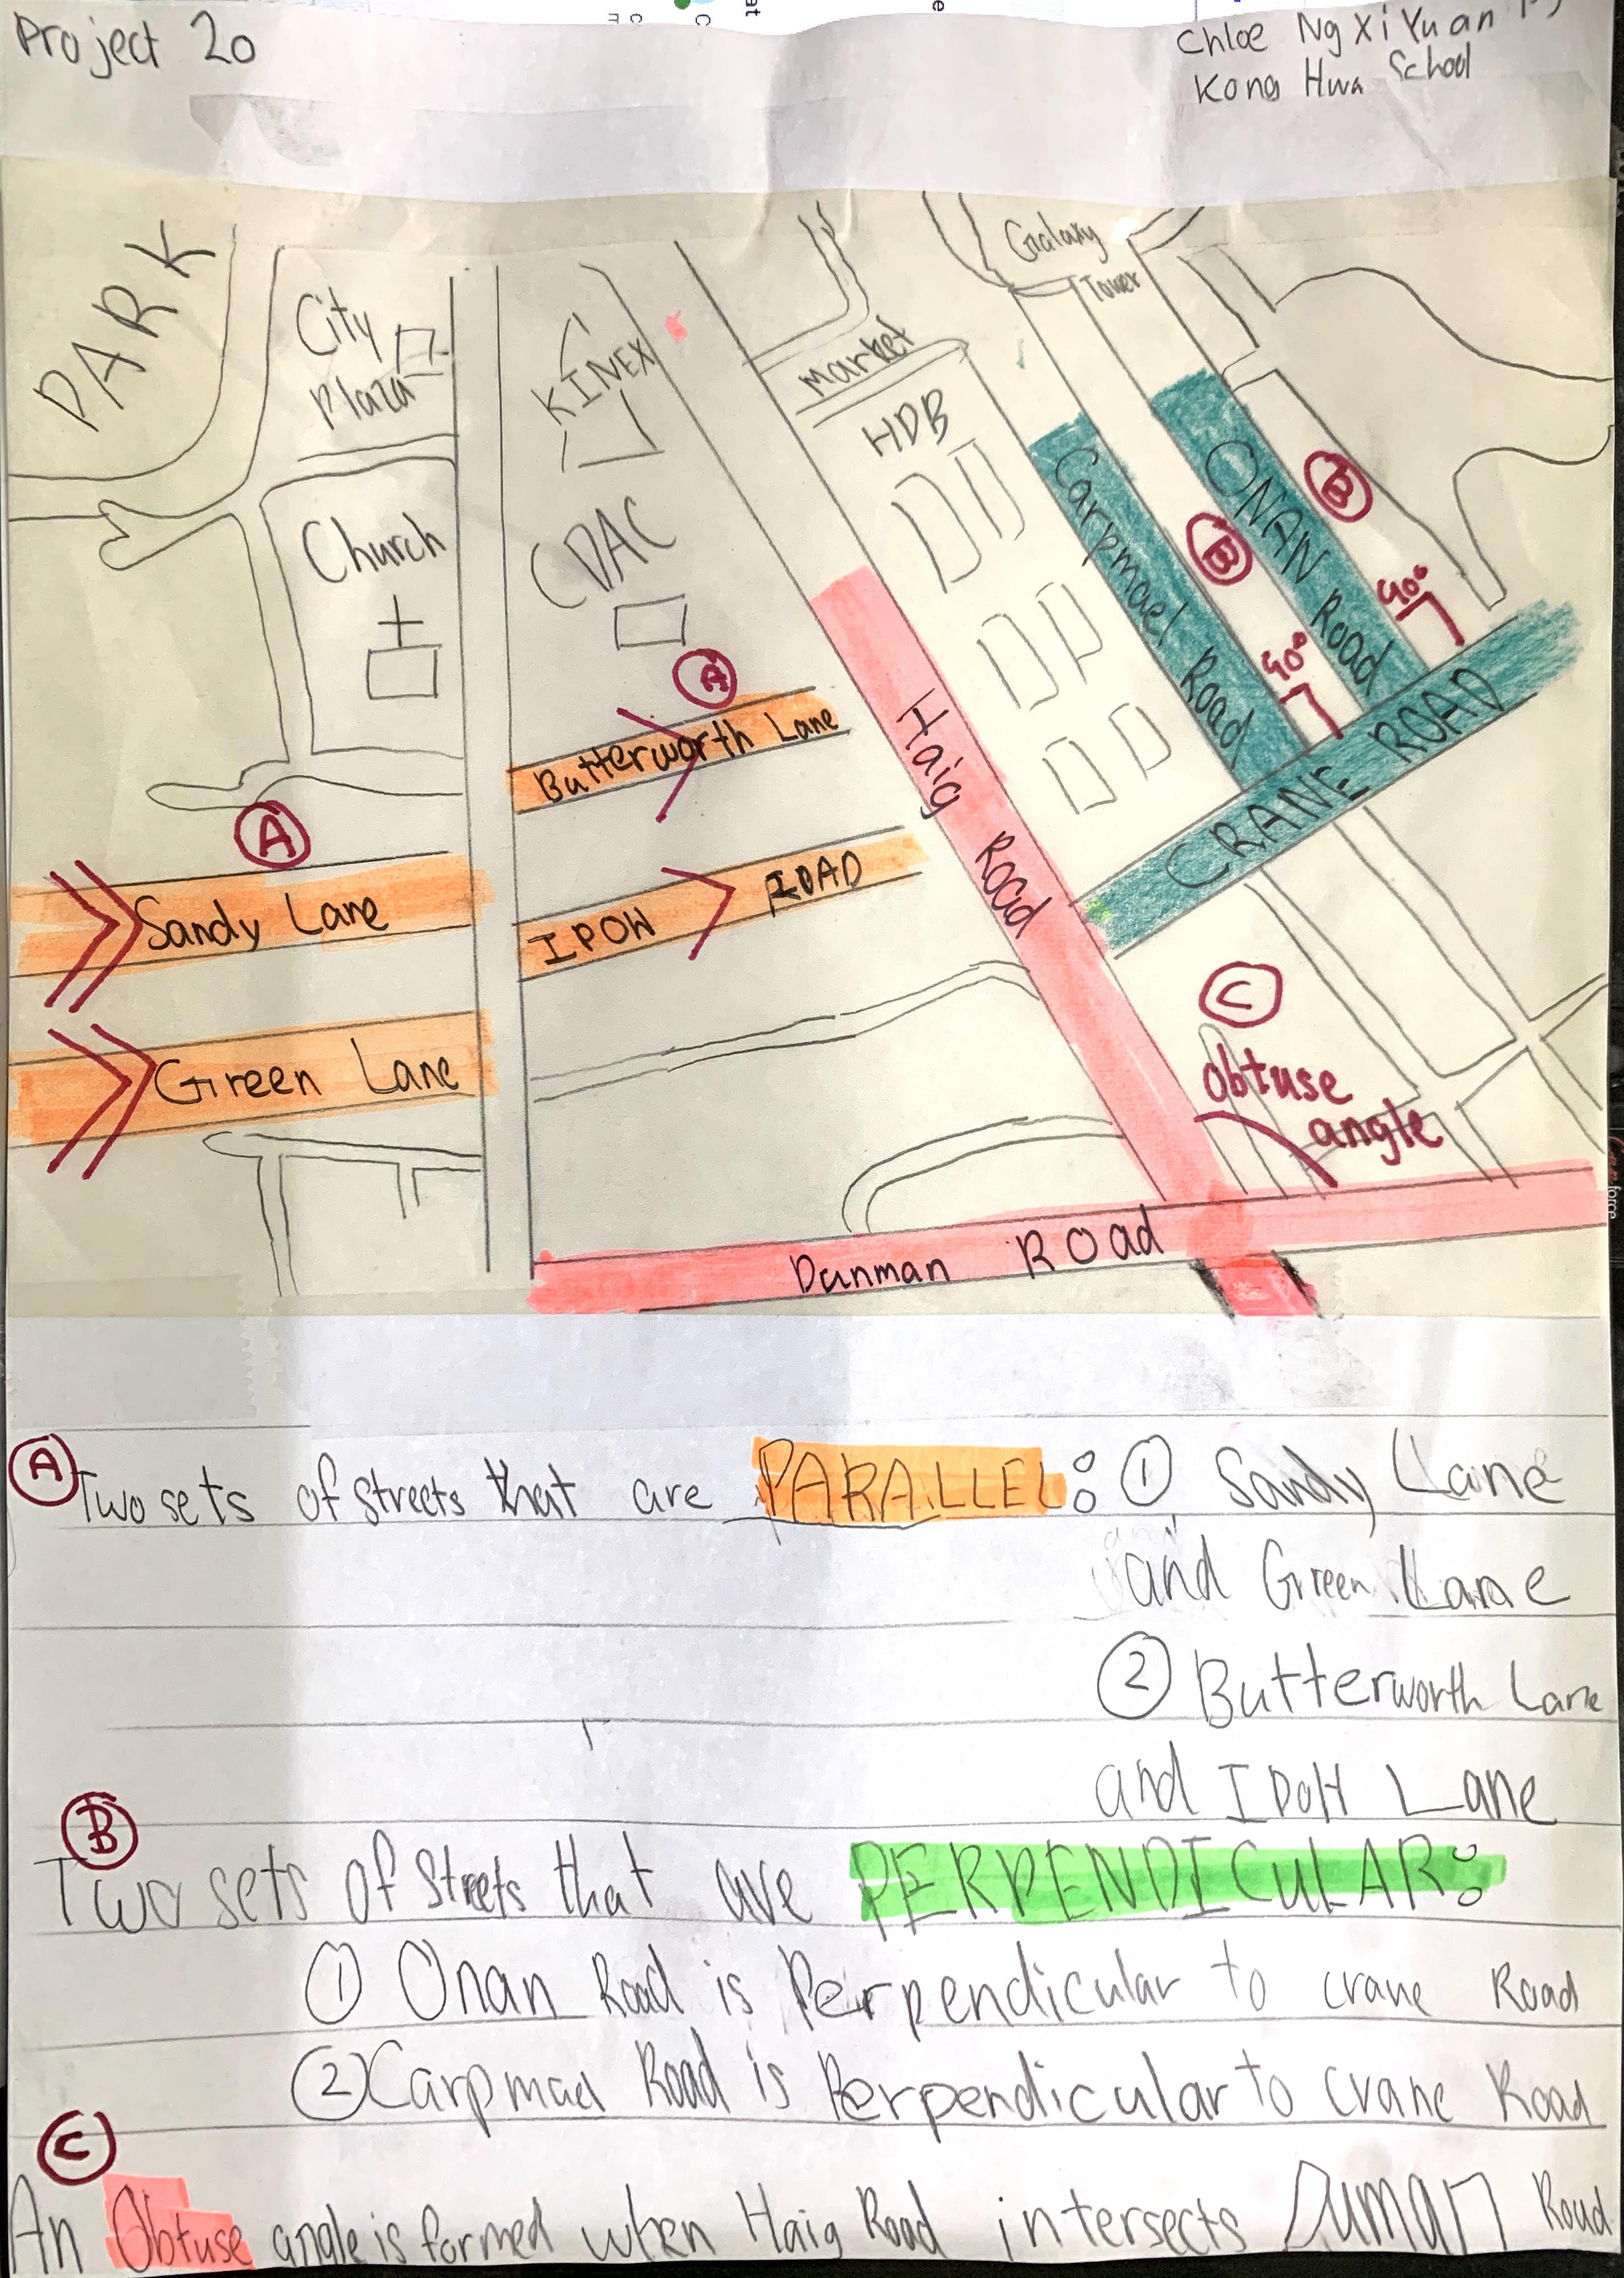 Project 20
Chloe Ng Xi Yuan
Kong Hwa School
PARK
City
Plaza
KINEX
Market
HDB
Galaxy
Tower
Church
CDAC
Carpmael Road
ONAN Road
B
B
40°
40°
CRANE ROAD
A
Butterworth Lane
Haig Road
A
Sandy Lane
IPOW ROAD
Green Lane
C
Obtuse
angle
Dunman ROad
A Two sets of streets that are PARALLEL: 1 Sandy Lane
and Green Lane
2 Butterworth Lane
and IPOH Lane
B
Two sets of Streets that are PERPENDICULAR:
1 Onan Road is Perpendicular to crane Road
2 Carpmael Road is Perpendicular to crane Road
C
An Obtuse angle is formed when Haig Road intersects Duman Road